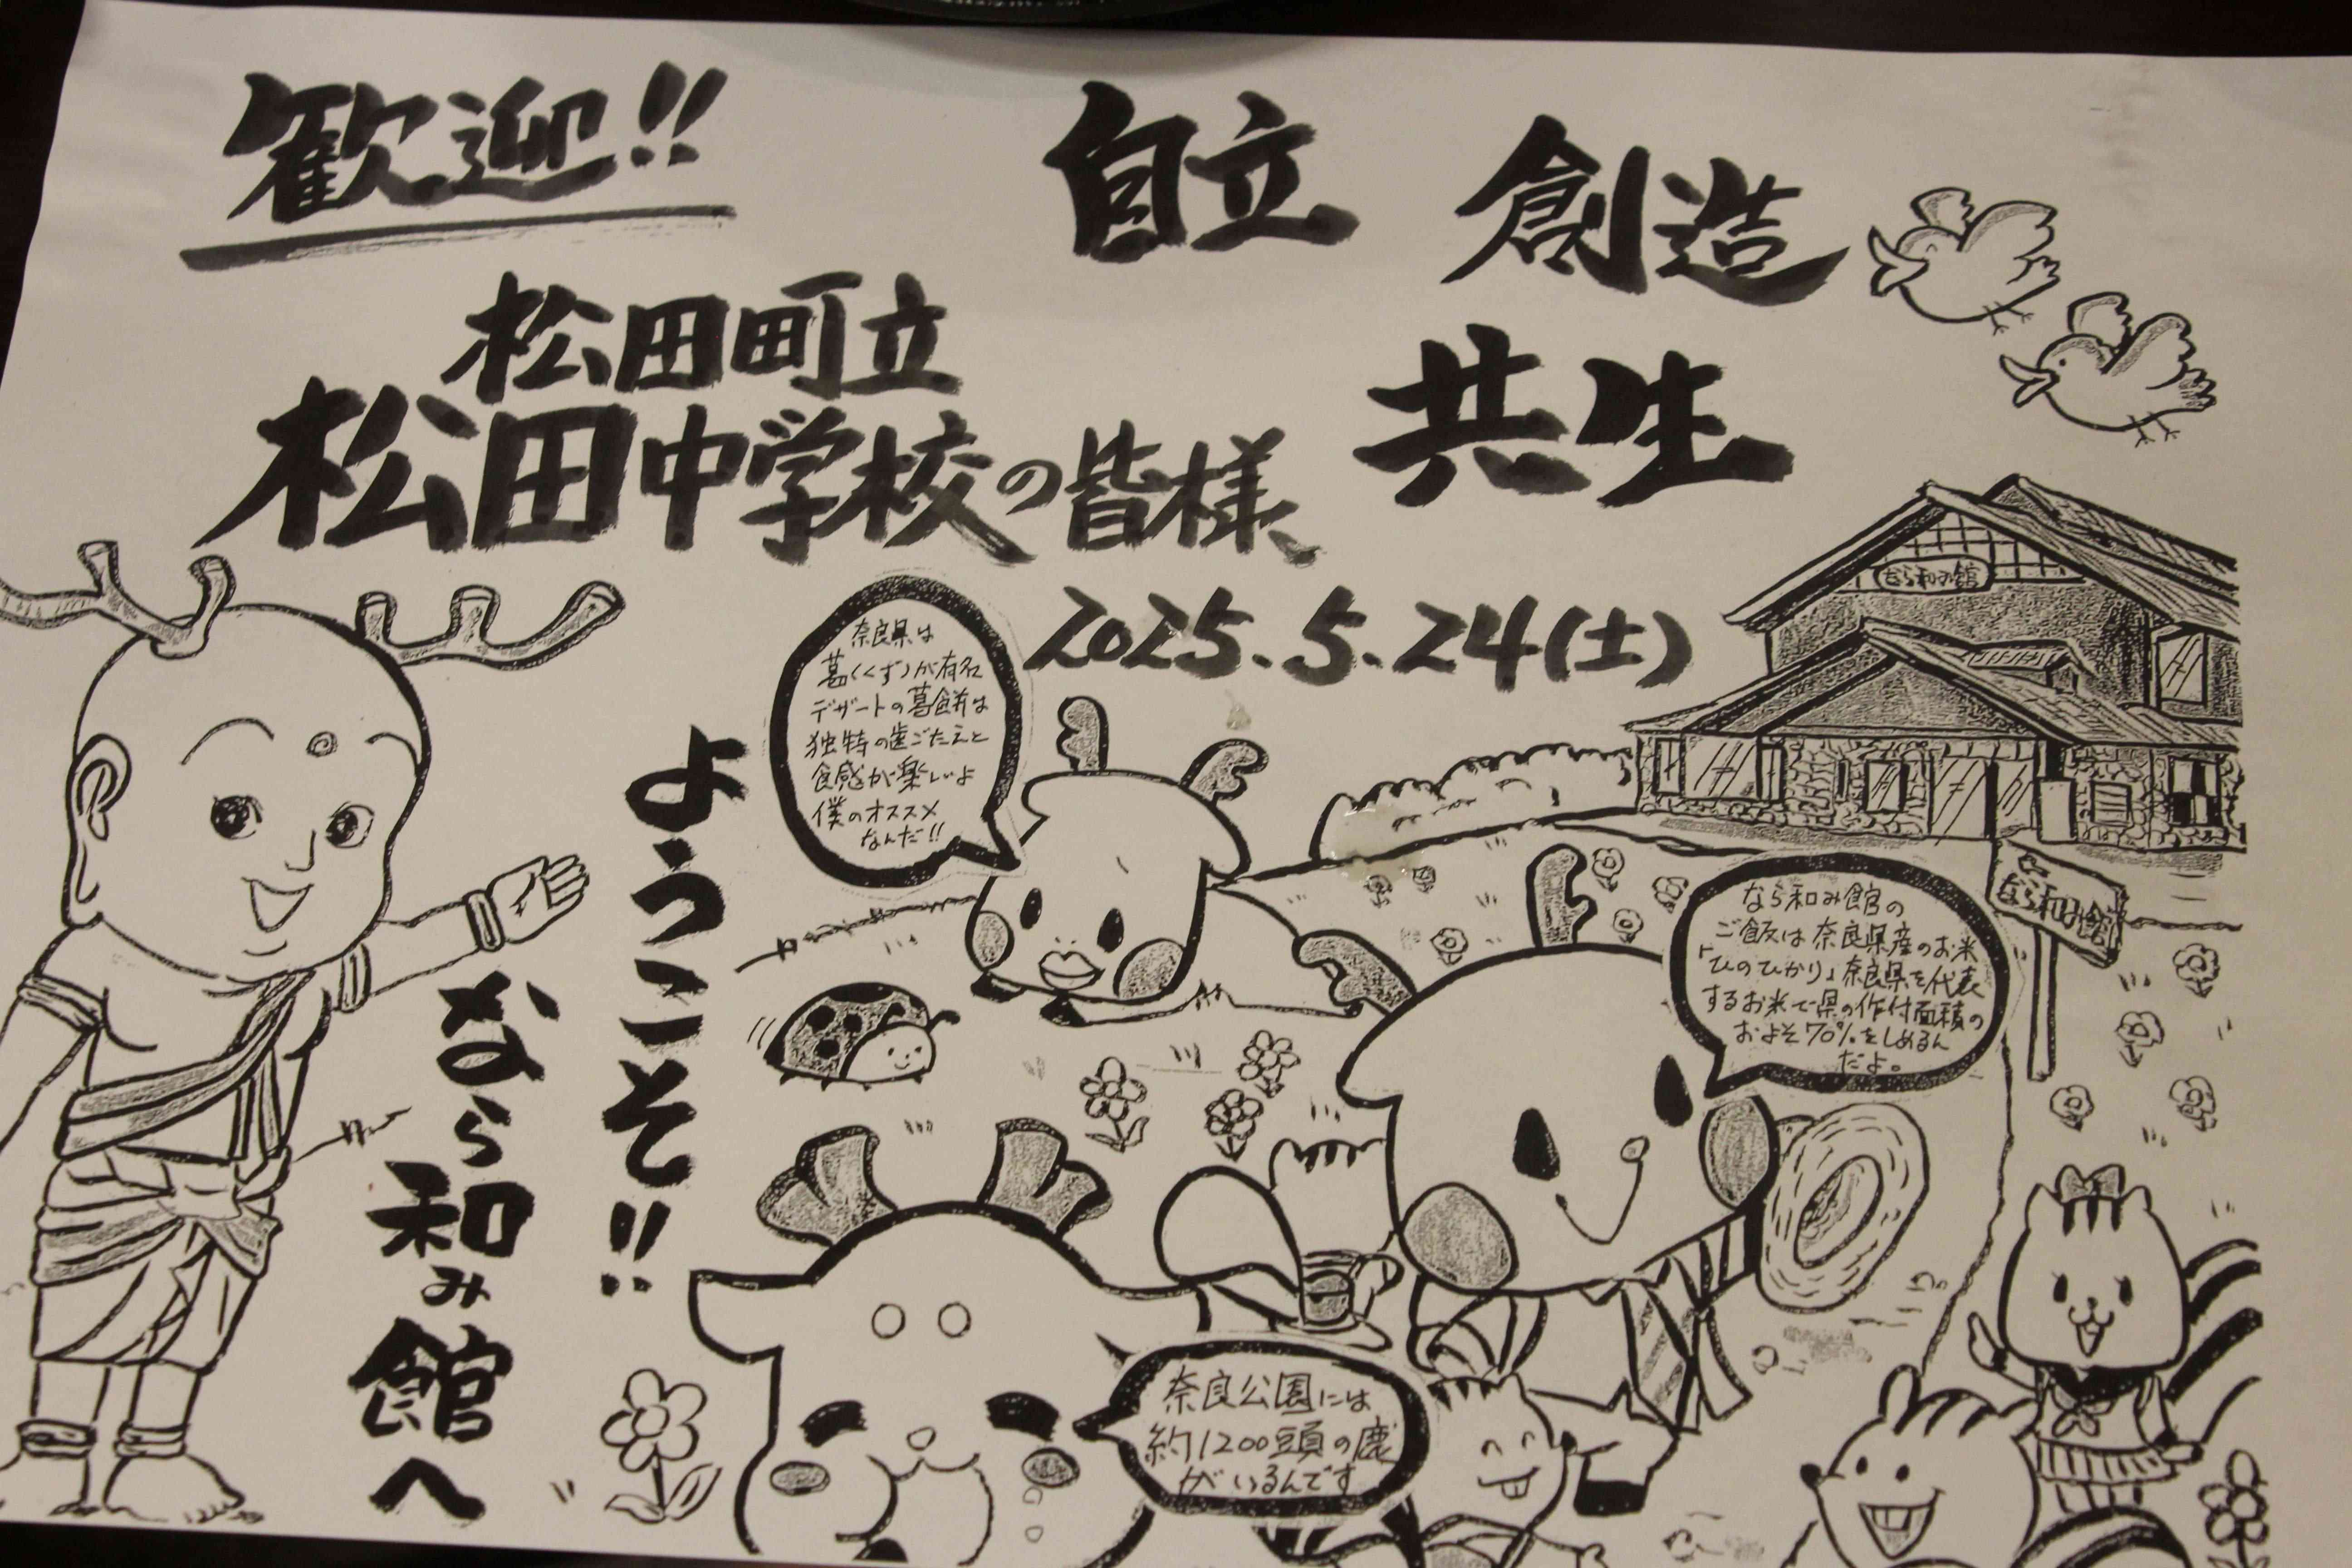 歓迎!!
自立 創造
共生
松田町立
松田中学校の皆様
2025.5.24(土)
ようこそ!!
なら和み館へ
奈良県は
葛(くず)が有名
デザートの葛餅は
独特の歯ごたえと
食感が楽しいよ
僕のオススメ
なんだ!!
なら和み館
なら和み館
なら和み館の
ご飯は奈良県産のお米
「ひのひかり」奈良県を代表
するお米で県の作付面積の
およそ70%をしめるん
だよ。
奈良公園には
約1200頭の鹿
がいるんです